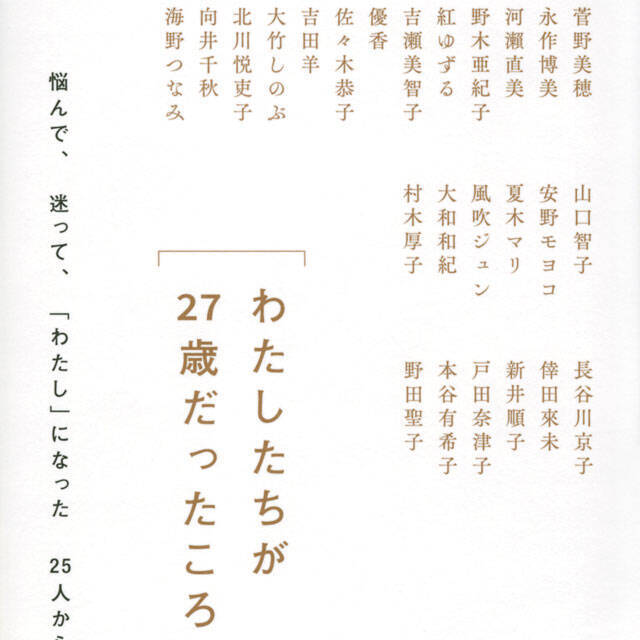 菅野美穂
永作博美
河瀨直美
野木亜紀子
紅ゆずる
吉瀬美智子
優香
佐々木恭子
吉田羊
大竹しのぶ
北川悦吏子
向井千秋
海野つなみ
山口智子
安野モヨコ
夏木マリ
風吹ジュン
大和和紀
村木厚子
長谷川京子
倖田來未
新井順子
戸田奈津子
本谷有希子
野田聖子
わたしたちが
27歳だったころ
悩んで、 迷って、 「わたし」になった 25人から